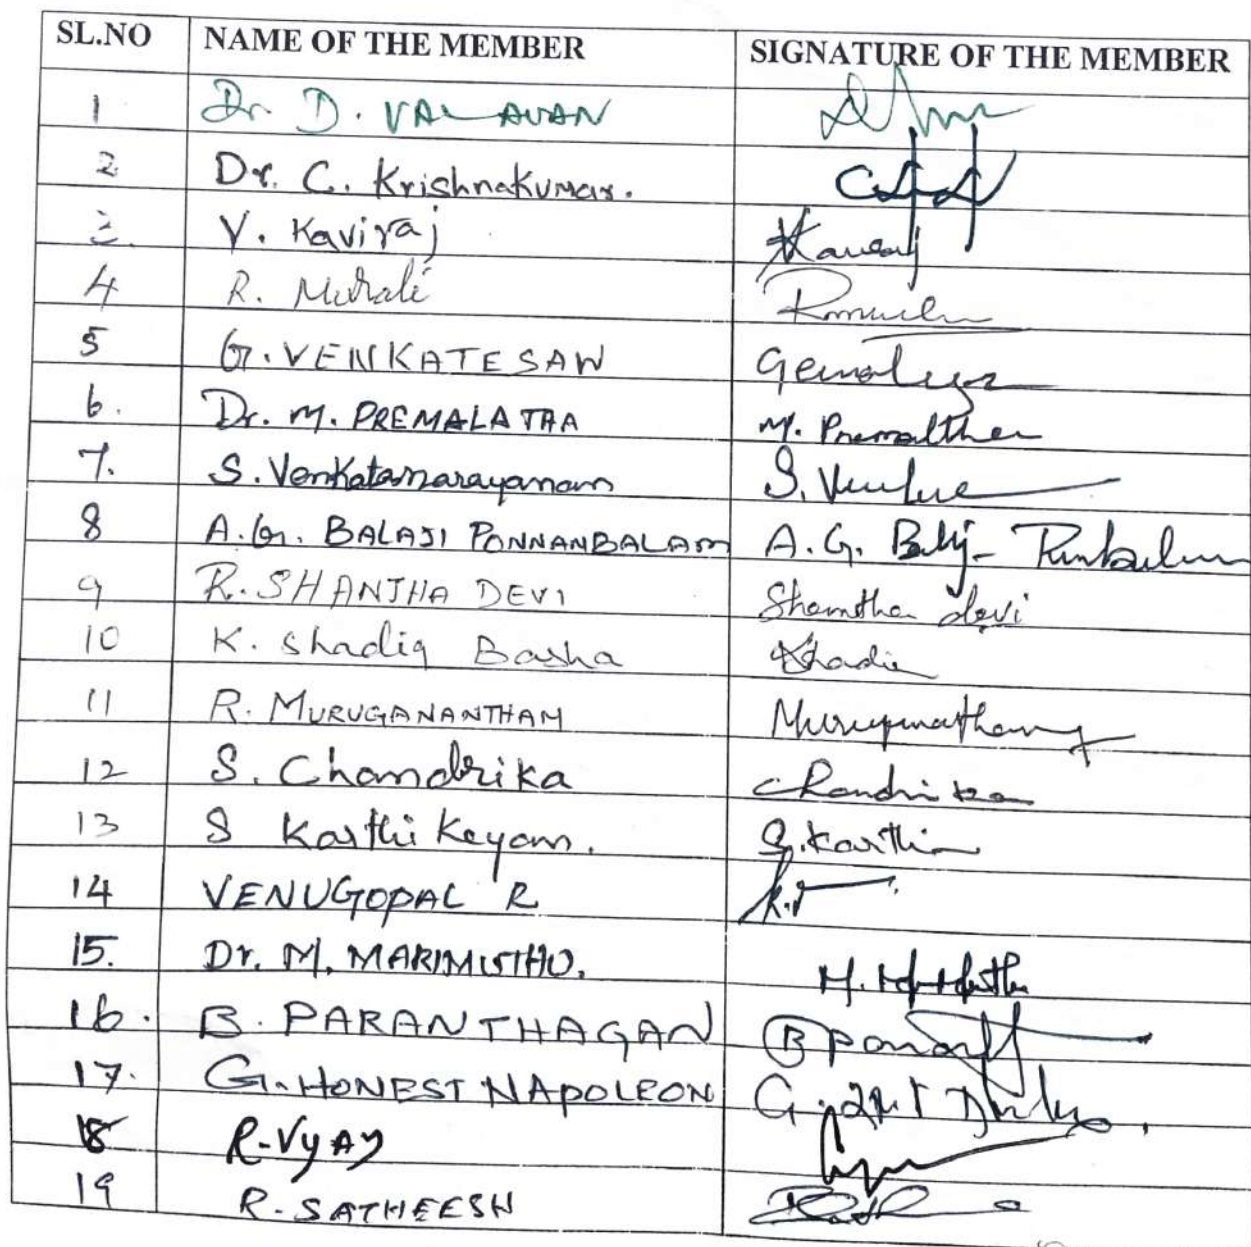 SL.NO NAME OF THE MEMBER SIGNATURE OF THE MEMBER
1 Dr. D. VALAVAN
2 Dr. C. Krishnakumar.
3. V. Kaviraj
4 R. Murali
5 G. VENKATESAN
6. Dr. M. PREMALATHA M. Premalatha
7. S. Venkatanarayanan
8 A.G. BALAJI PONNANBALAM A. G.
9 R. SHANTHA DEVI Shantha devi
10 K. Shadiq Basha
11 R. MURUGANANTHAM
12 S. Chandrika Chandrika
13 S Karthikeyan. S. Karthi
14 VENUGOPAL R
15. Dr. M. MARIMUTHU.
16. B. PARANTHAGAN
17. G. HONEST NAPOLEON
18 R-Vijay
19 R. SATHEESH